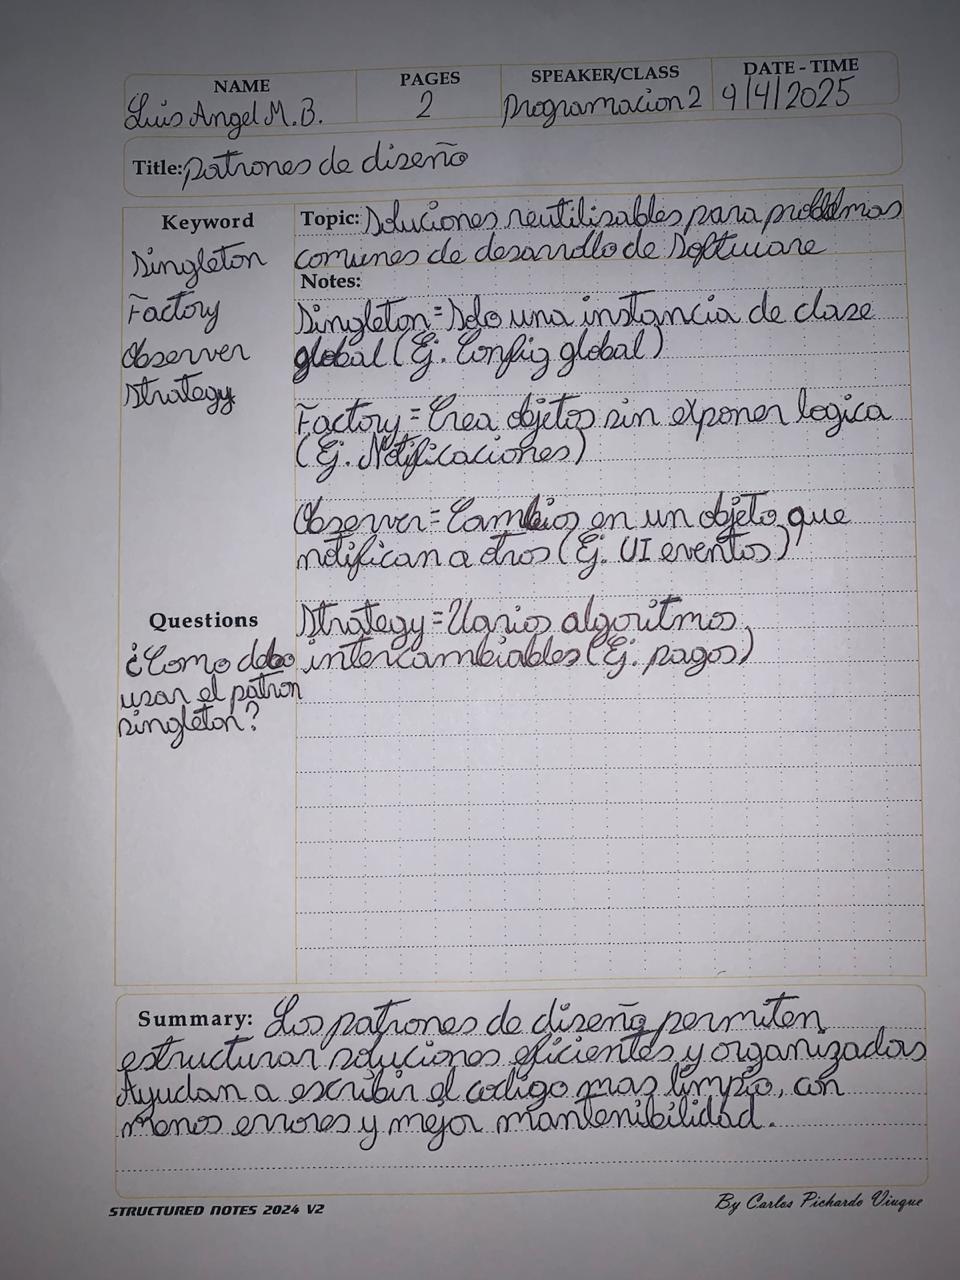 NAME PAGES SPEAKER/CLASS DATE - TIME
Luis Angel M.B. 2 Programacion 2 9/4/2025
Title: Patrones de diseño
Keyword
Singleton
Factory
Observer
Strategy
Topic: Soluciones reutilisables para problemas
comunes de desarrollo de Software
Notes:
Singleton = Solo una instancia de clase
global (Ej. Config global)
Factory = Crea objetos sin exponer logica
(Ej. Notificaciones)
Observer = Cambios en un objeto que
notifican a otros (Ej. UI eventos)
Strategy = Varios algoritmos
intercambiables (Ej. pagos)
Questions
¿Como debo
usar el patron
singleton?
Summary: Los patrones de diseño permiten
estructurar soluciones eficientes y organizadas
Ayudan a escribir el codigo mas limpio, con
menos errores y mejor mantenibilidad.
STRUCTURED NOTES 2024 V2
By Carlos Pichardo Viuque